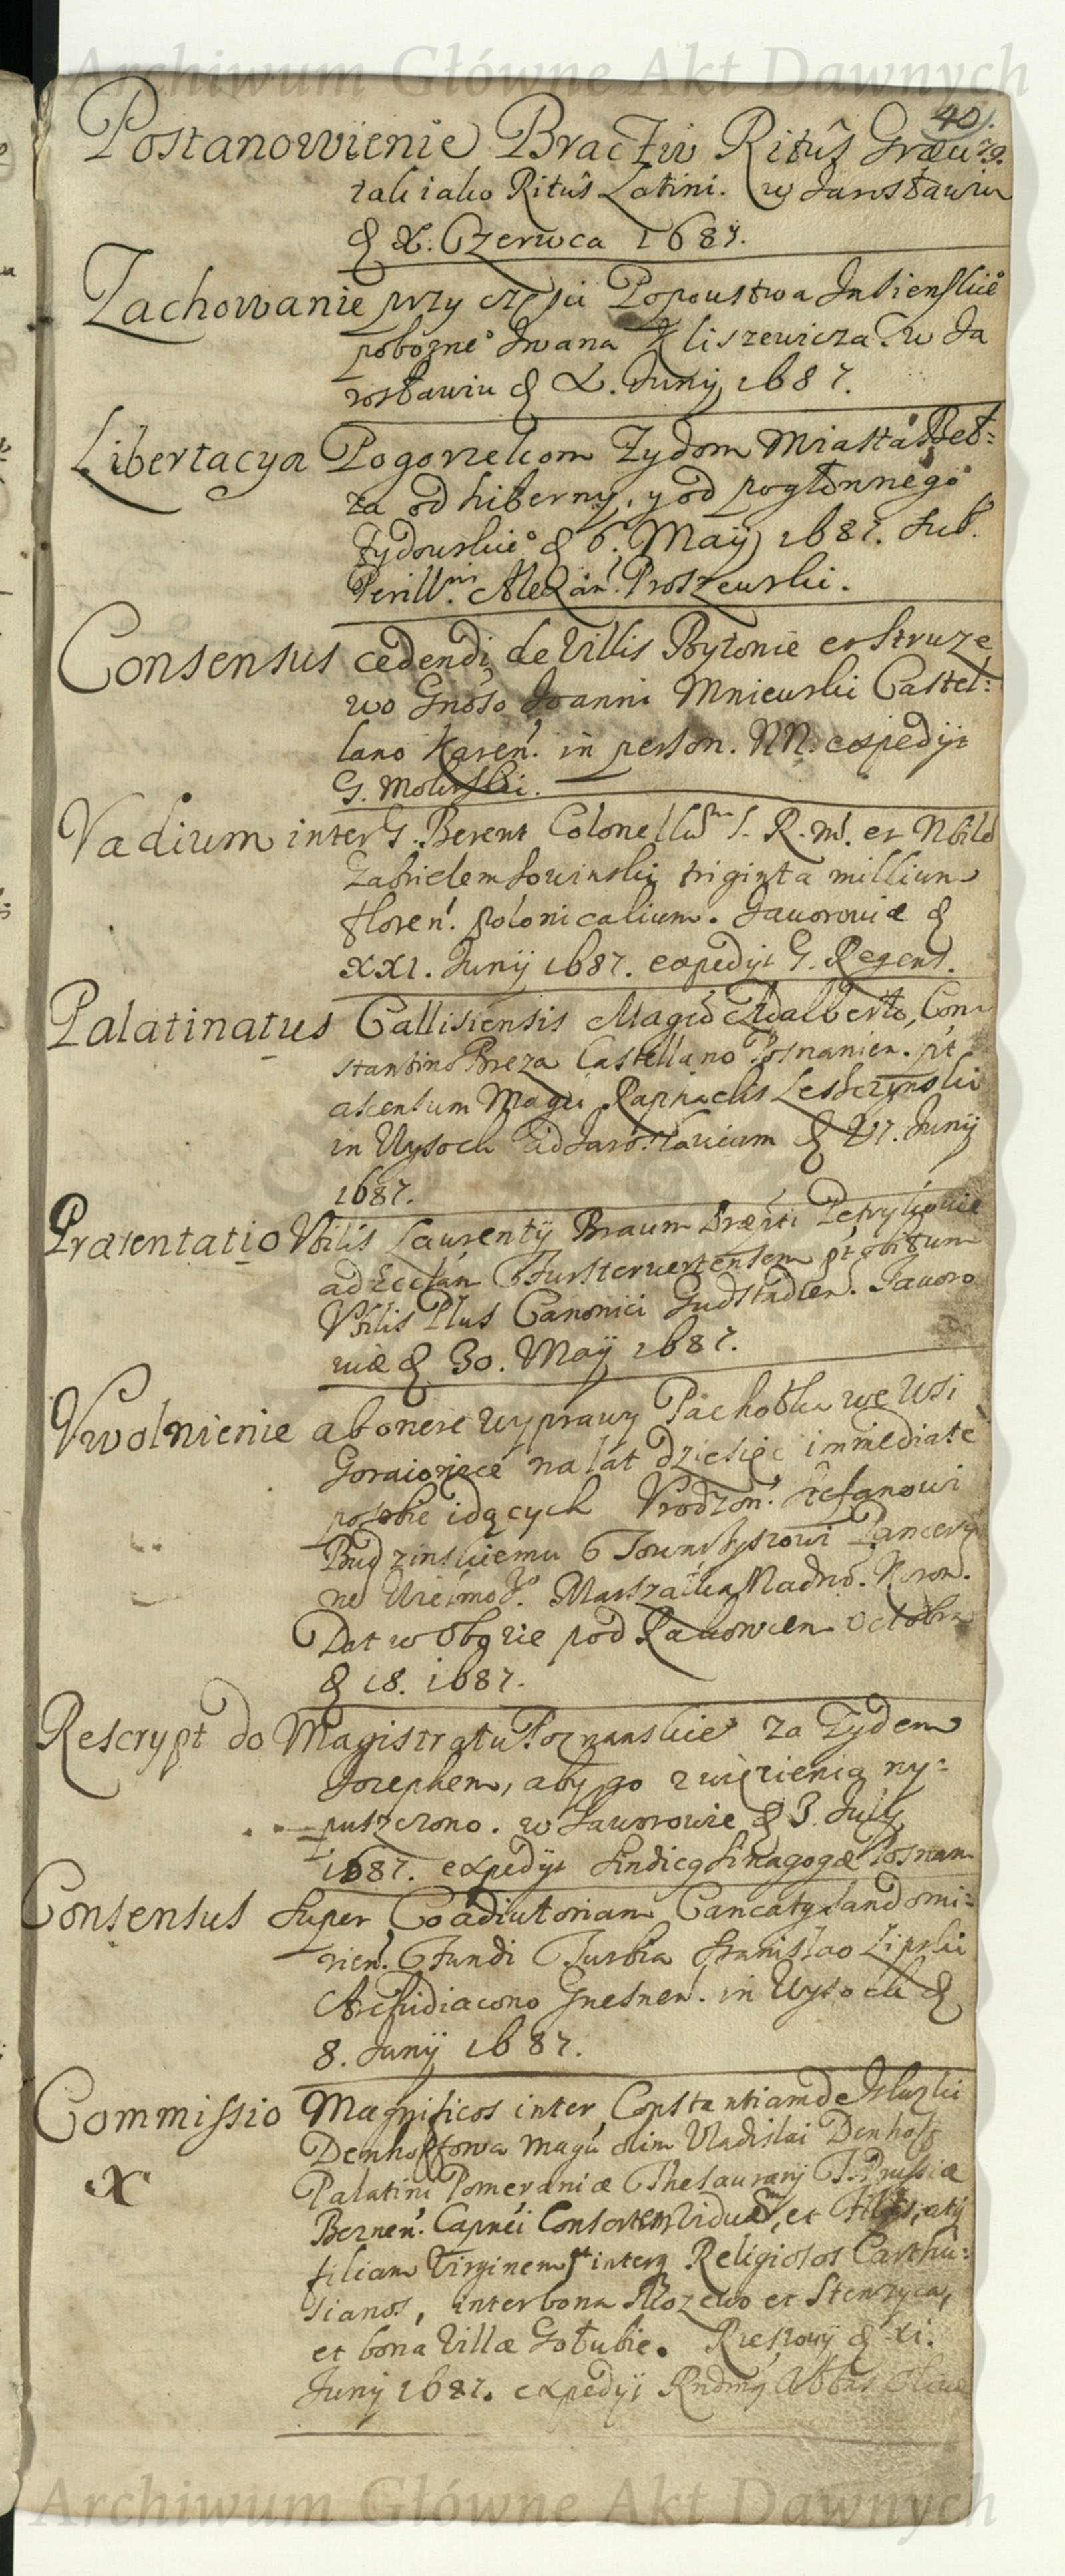 Archiwum Główne Akt Dawnych
40.
Postanowienie Bractw Ritûs Græci
tak iako Ritûs Latini. w Jarosławiu
d X. Czerwca 1687.
Zachowanie przy części Popowstwa
pobożne° Iwana w Ja
rosławiu d X. Junij 1687.
Libertacya Pogorzelcom Zydom Miasta Beł=
za od hiberny, y od pogłównego
Zydowskie° d 6. Maij 1687. sub.
Perill. Alexan. Proszewski.
Consensus cedendi de Villis Bytonie et Struze
wo Gnoso Joanni Mniewski Castel=
lano in person. NN. expedijt
G. Molewski.
Vadium inter G. Berent Colonellum S. R. M. et Nbile
Gabrielem Sowinski triginta millium
floren. polonicalium. Javoroviæ d
XXI. Junij 1687. expedijt G. Regens.
Palatinatus Callisiensis Magco Adalberto, Con
stantino Breza Castellano Posnanien. pt
ascensum Magci Raphaelis Leszczynski
in Wysock ad Jaroslaviam d Junij
1687.
Præsentatio Vbilis Laurentij Braun
ad Ecclan pt obitum
Vbilis Plus Canonici Gudstadien. Javoro
viæ d 30. Maij 1687.
Vwolnienie ab onere wyprawy Pachołka we Wsi
na lat dziesięć immediate
po sobie idących Vrodzon. Stefanowi
Budzinskiemu Towarzyszowi Pancerny
Marszałka Nadwo. Koron.
Dat w Obozie pod Octobra
d 18. 1687.
Rescrypt do Magistratu Poznanskie° za Zydem
Jozephem, aby go z więzienia wy=
puszczono. w Jaworowie d 3. July
1687. expedijt Sindicq Sinagogæ Posnan
Consensus super Coadiutoriam Sandomi=
rien. Fundi Turbia Stanislao Lipski
Archidiacono Gnesnen. in Wysock d
8. Junij 1687.
Commissio Magnificos inter Constantiam de Słuzki
Denhoffowa Magci olim Vladislai Denhoff
Palatini Pomeraniæ Thesaurarij T. Prussiæ
Bernen. Capnei Consortem Viduam, et
filiam Virginem et interq Religiosos Carthu=
sianos, inter bona et Stenzyca,
et bona Villæ Gołubie. d XI.
Junij 1687. expedijt Rndmq Abbas
X
Archiwum Główne Akt Dawnych